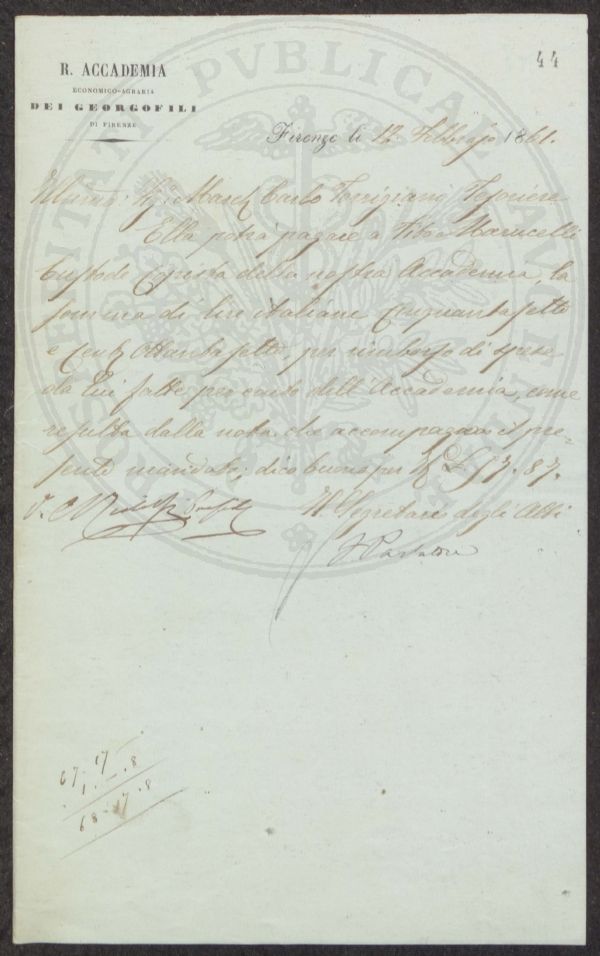 44
R. ACCADEMIA
ECONOMICO-AGRARIA
DEI GEORGOFILI
DI FIRENZE
Firenze li 12 Febbrajo 1861.
Illmo: Sig: March Carlo Torrigiani Tesoriere
Ella potrà pagare a Tito Marucelli
Custode Copista della nostra Accademia, la
somma di lire italiane Cinquantasette
e Cent Ottantasette, per rimborso di spese
da lui fatte per conto dell'Accademia, come
resulta dalla nota che accompagna il pre-
sente mandato; dico buono per L 57. 87.
V. C Ridolfi
Il Segretario degli Atti
67. 17
1. - . 8
68 - 17 . 8
PROSPERITATI PUBLICAE AUGENDAE